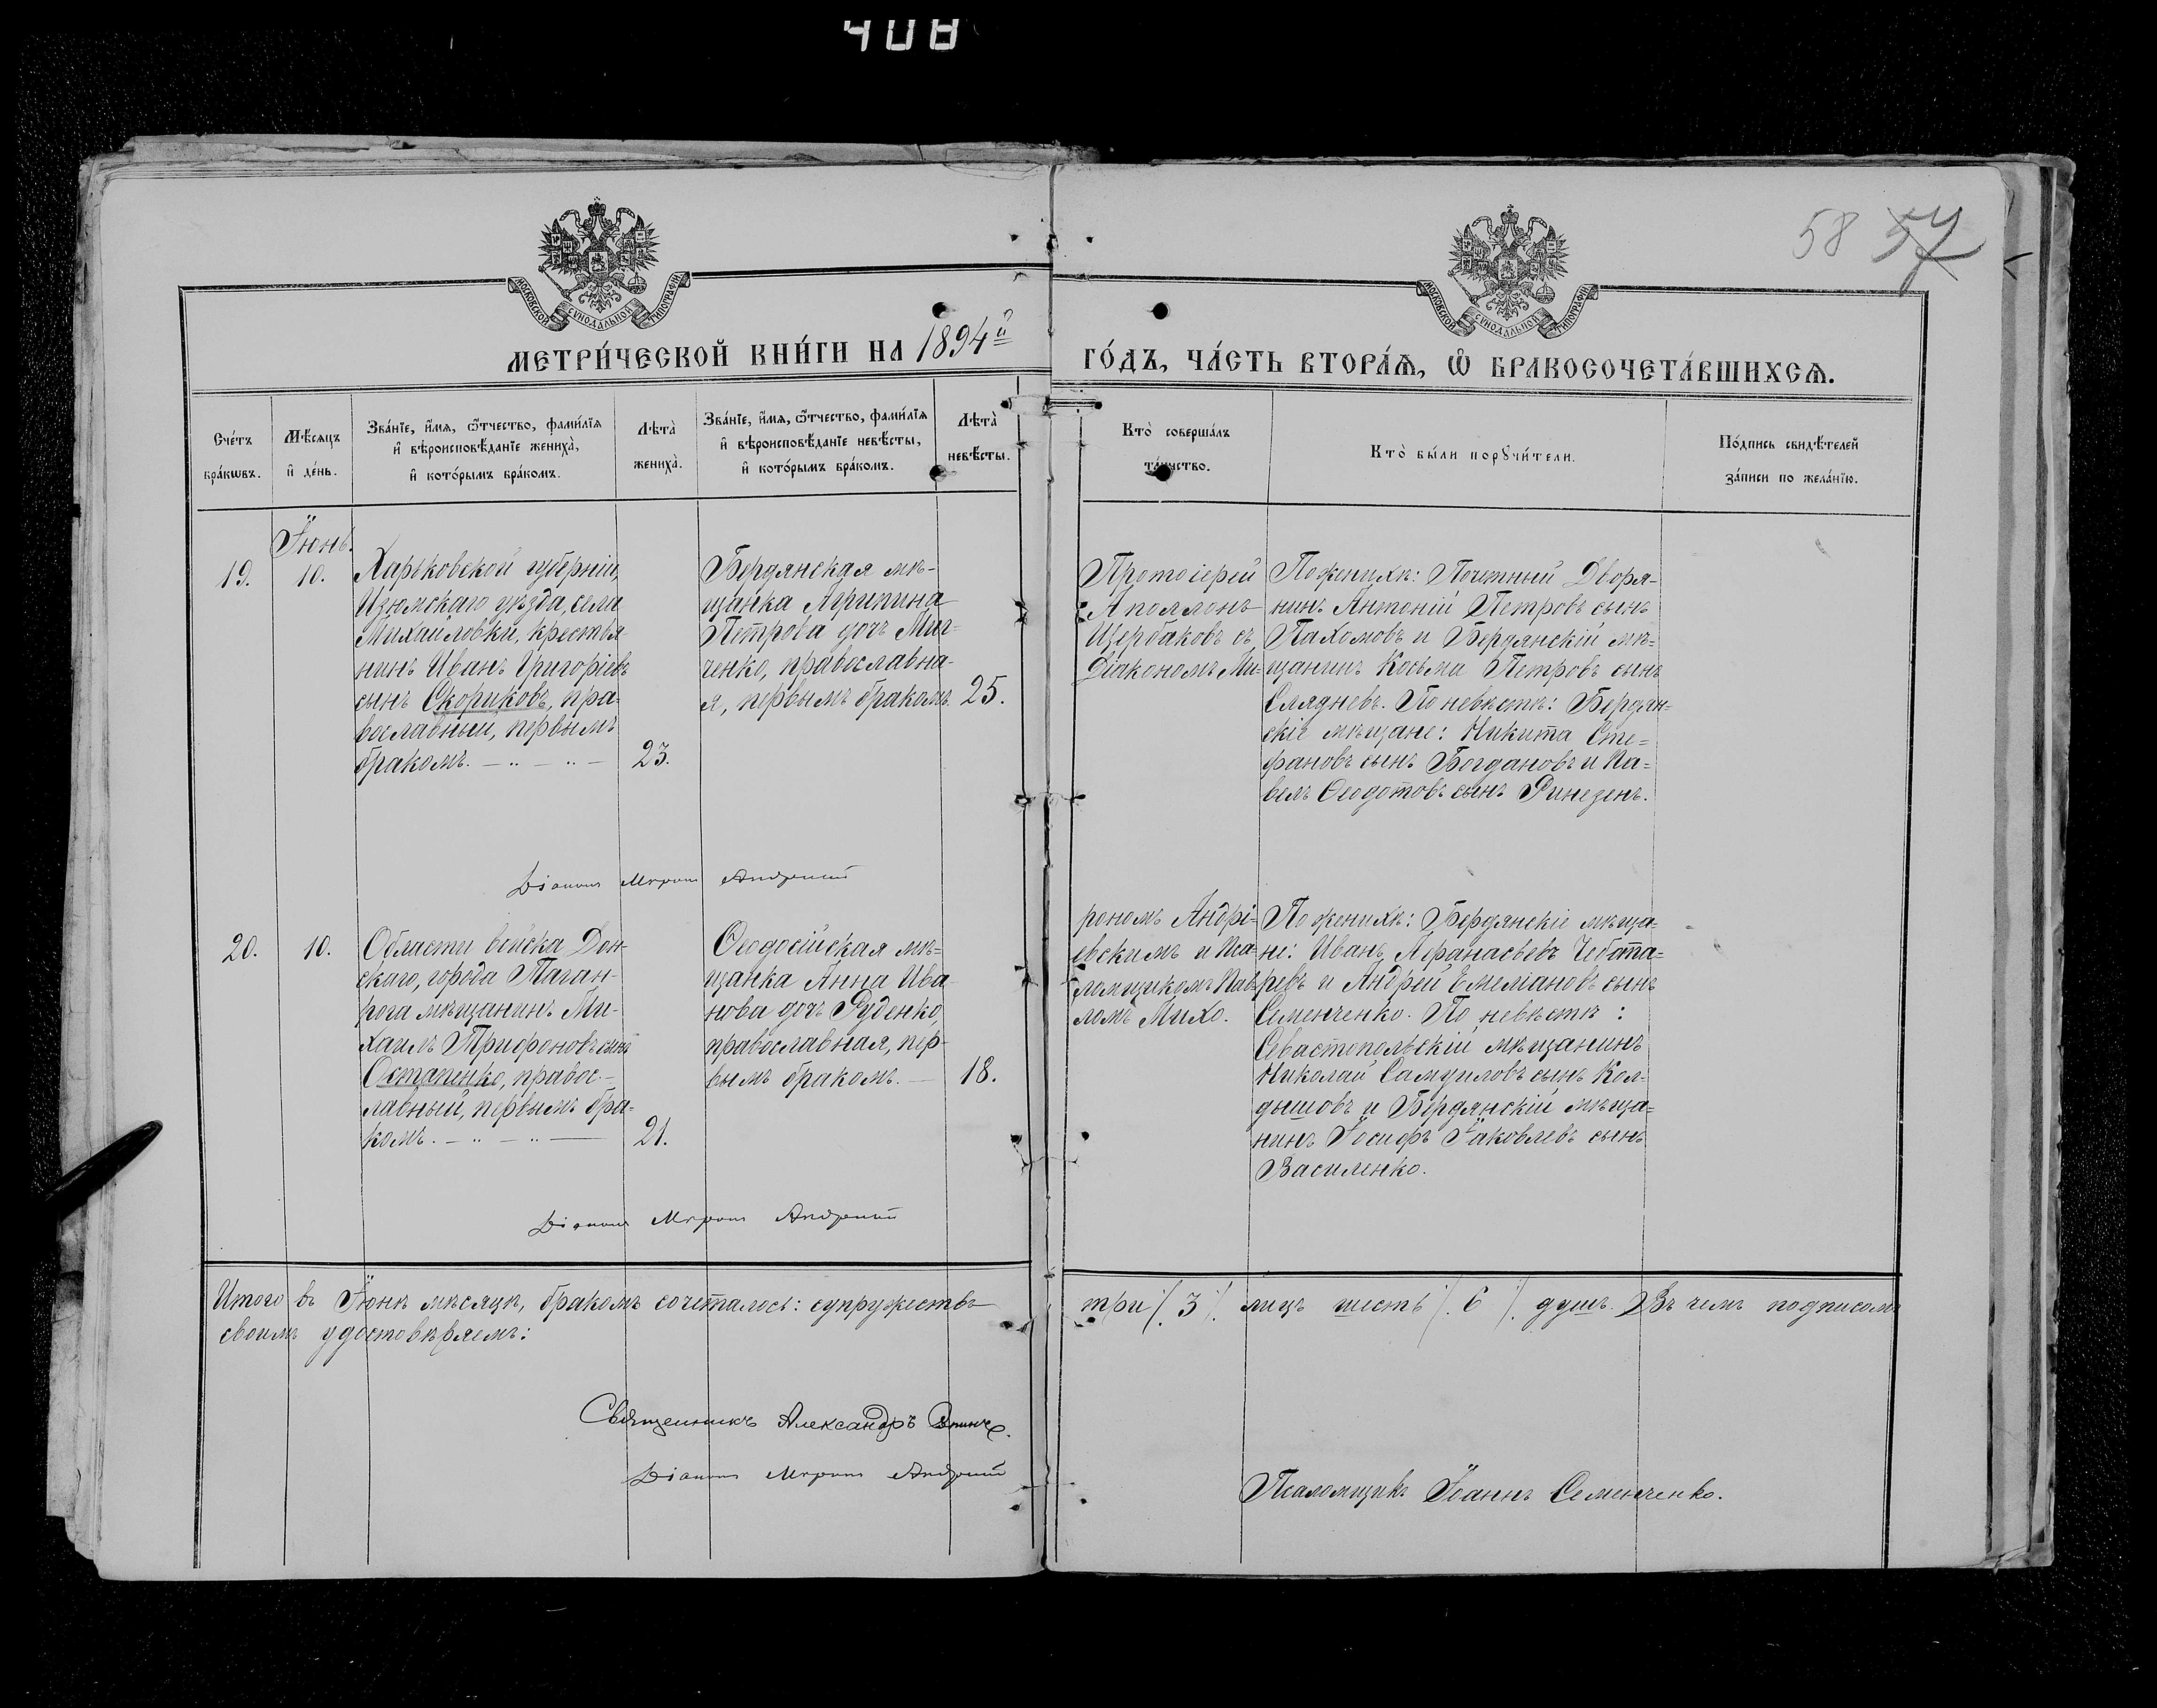 408
58 57
МОСКОВСКОЙ СѴНОДАЛЬНОЙ ТИПОГРАФІИ
МОСКОВСКОЙ СѴНОДАЛЬНОЙ ТИПОГРАФІИ
МЕТРИ́ЧЕСКОЙ КНИ́ГИ НА 1894й
ГО́ДЪ, ЧА́СТЬ ВТОРА́Ѧ, Ѽ БРАКОСОЧЕТА́ВШИХСѦ.
Сче́тъ
бра́кѡвъ.
Мѣ́сяцъ
и҆ де́нь.
Зва́нїе, и҆́мѧ, ѻ҆́тчество, фами́лїѧ
и҆ вѣроисповѣ́данїе жениха̀,
и҆ кото́рымъ бра́комъ.
Лѣта̀
жениха̀.
Зва́нїе, и҆́мѧ, ѻ҆́тчество, фами́лїѧ
и҆ вѣроисповѣ́данїе невѣ́сты,
и҆ кото́рымъ бра́комъ.
Лѣта̀
невѣ́сты.
Кто̀ соверша́лъ
та́инство.
Кто̀ бы́ли порꙋчи́тели.
По́дпись свидѣ́телей
за́писи по жела́нїю.
Іюнь.
19.
10.
Харьковской губерніи,
Изюмскаго уѣзда, села
Михайловки, крестья
нинъ Иванъ Григоріевъ
сынъ Скориковъ, пра-
вославный, первымъ
бракомъ.
23.
Бердянская мѣ-
щанка Агрипина
Петрова дочь Миг-
ченко, православна-
я, первымъ бракомъ.
25.
Протоіерей
Аполлонъ
Щербаковъ съ
Діакономъ Ми-
По женихѣ: Почетный Дворя-
нинъ Антоній Петровъ сынъ
Пахомовъ и Бердянскій мѣ-
щанинъ Косьма Петровъ сынъ
Слядневъ. По невѣстѣ: Бердян-
скіе мѣщане: Никита Сте-
фановъ сынъ Богдановъ и Па-
велъ Ѳеодотовъ сынъ Финезенъ.
Діаконъ Миронъ Андреевскій
20.
10.
Области войска Дон-
скаго, города Таган-
рога мѣщанинъ Ми-
хаилъ Трифоновъ сынъ
Остапенко, правос-
лавный, первымъ бра-
комъ.
21.
Ѳеодосійская мѣ-
щанка Анна Ива
нова дочь Руденко,
православная, пер-
вымъ бракомъ.
18.
рономъ Андрі-
евскимъ и Пса-
ломщикомъ Пав-
ломъ Михо.
По женихѣ: Бердянскіе мѣща-
не: Иванъ Аѳанасьевъ Чебота-
ревъ и Андрей Емеліановъ сынъ
Семенченко. По невѣстѣ:
Севастопольскій мѣщанинъ
Николай Самуиловъ сынъ Кол-
дышовъ и Бердянскій мѣща-
нинъ Іосифъ Іаковлевъ сынъ
Василенко.
Діаконъ Миронъ Андреевскій
Итого въ Іюнѣ мѣсяцѣ, бракомъ сочеталось: супружествъ три /. 3 /. лицъ шесть /. 6 /. душъ. Въ чемъ подписомъ
своимъ удостовѣряемъ:
Священникъ Александръ
Діаконъ Миронъ Андреевскій
Псаломщикъ Іоаннъ Семенченко.